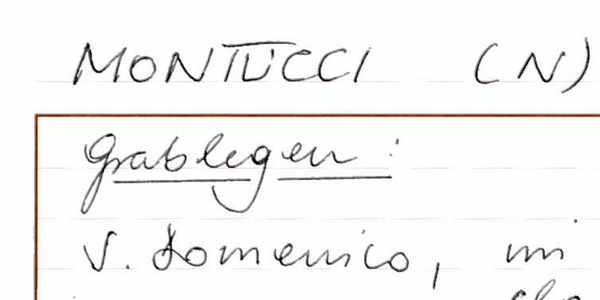 MONTUCCI (N)
Grablegen:
S. Domenico, im